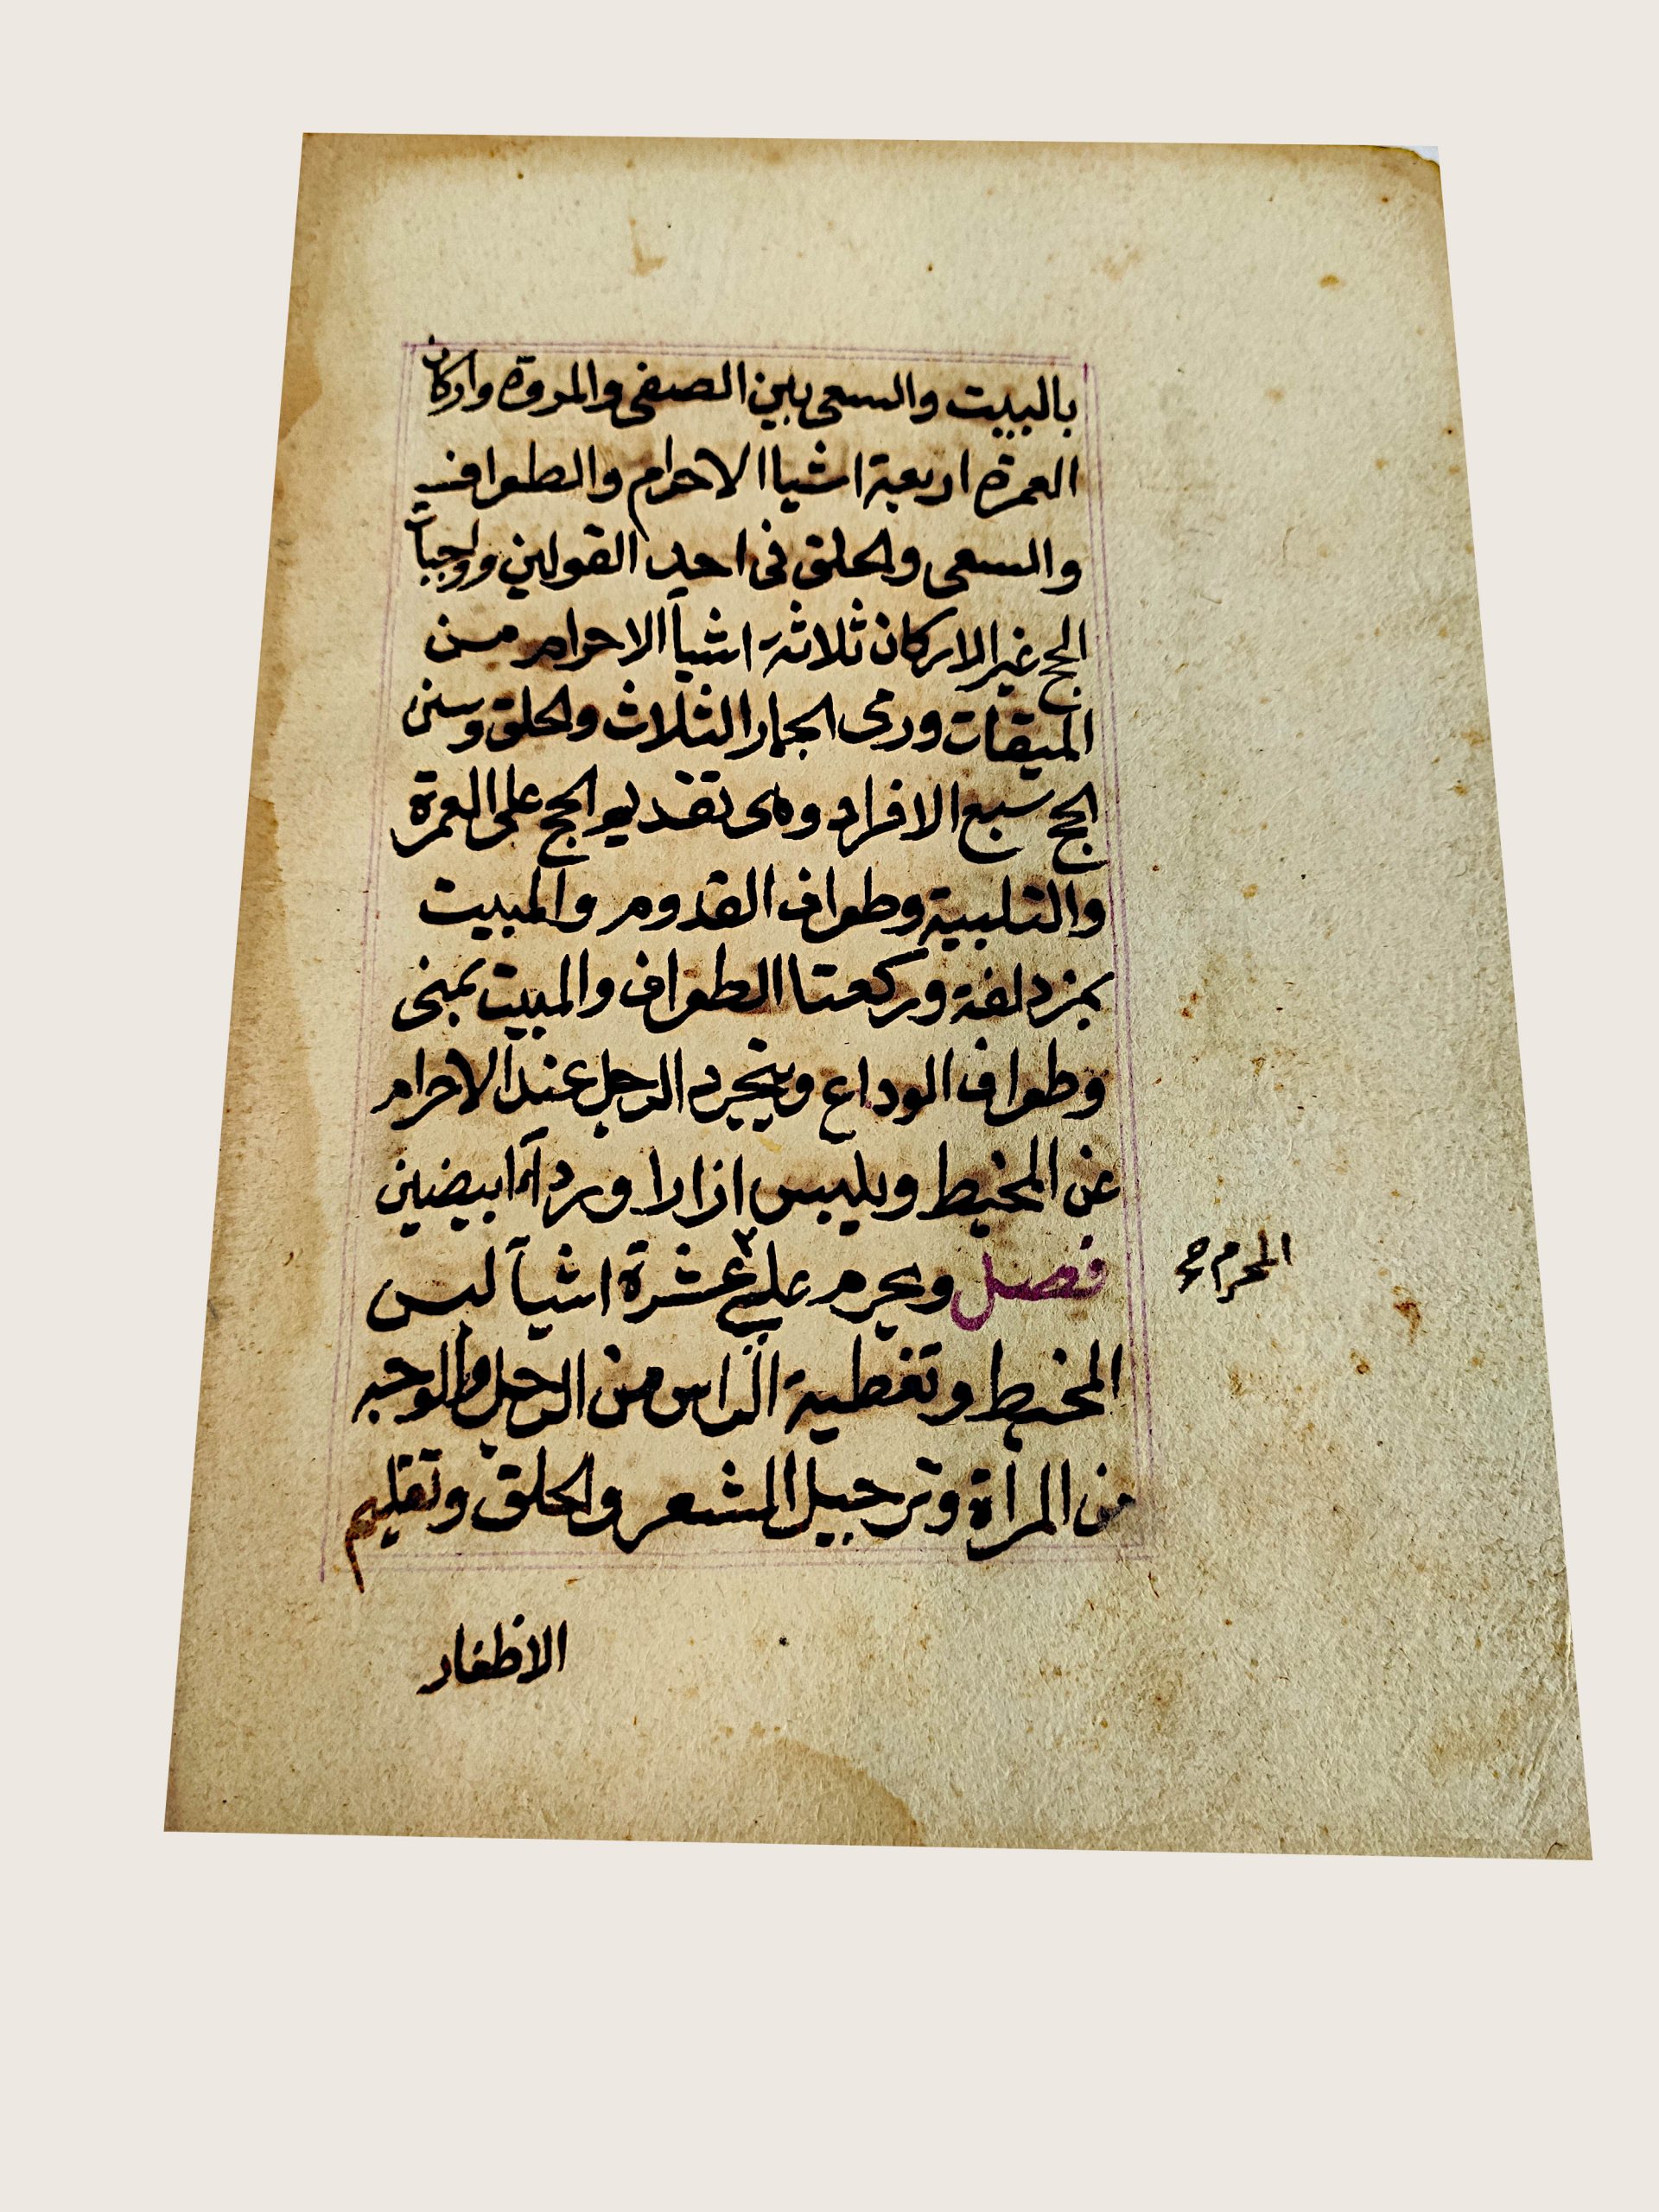 بالبيت والسعى بين الصفى والمروة واركان
العمرة اربعة اشياا الاحرام والطواف
والسعى والحلق فى احد القولين وواجبات
الحج غير الاركان ثلاثة اشيآ الاحرام من
الميقات ورمى الجمار الثلاث والحلق وسنن
الحج سبع الافراد وهى تقديم الحج على العمرة
والتلبية وطواف القدوم والمبيت
بمزدلفة وركعتا الطواف والمبيت بمنى
وطواف الوداع ويتجرد الرجل عند الاحرام
عن المخيط ويلبس ازارا وردآء ابيضين
فصل ويحرم على عشرة اشيآ لبس
المحرم
المخيط وتغطية الراس من الرجل والوجه
من المرأة وترجيل الشعر والحلق وتقليم
الاظفار